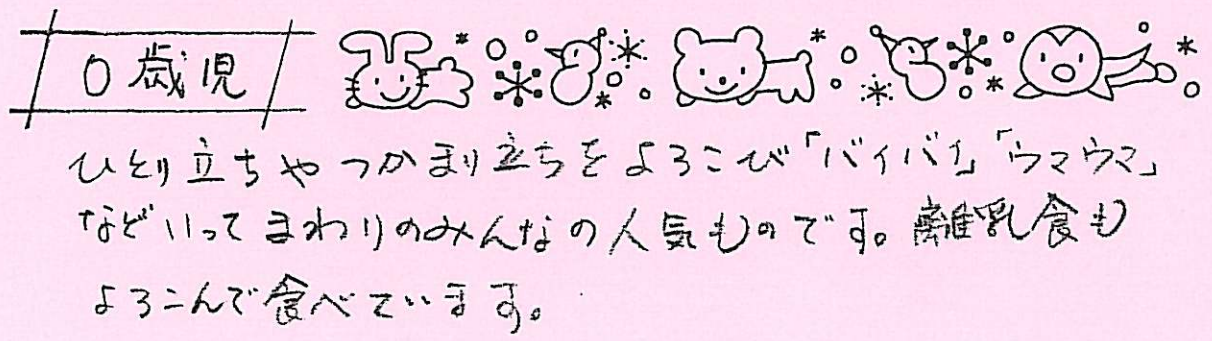 0歳児
ひとり立ちやつかまり立ちをよろこび「バイバイ」「ウマウマ」
などいってまわりのみんなの人気ものです。離乳食も
よろこんで食べています。